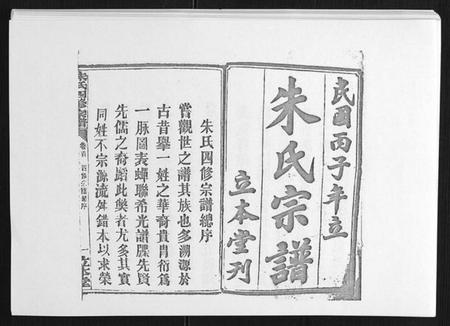 民國丙子年立
朱氏宗譜
立本堂刊
朱氏四修宗譜總序
嘗觀世之譜其族也多溯源於
古昔舉一姓之華裔貴冑衍為
一脉圖表蟬聯希光譜牒先賢
先儒之裔蹈此獘者尤多其實
同姓不宗源流舛錯未以求榮
朱氏四修宗譜
卷首